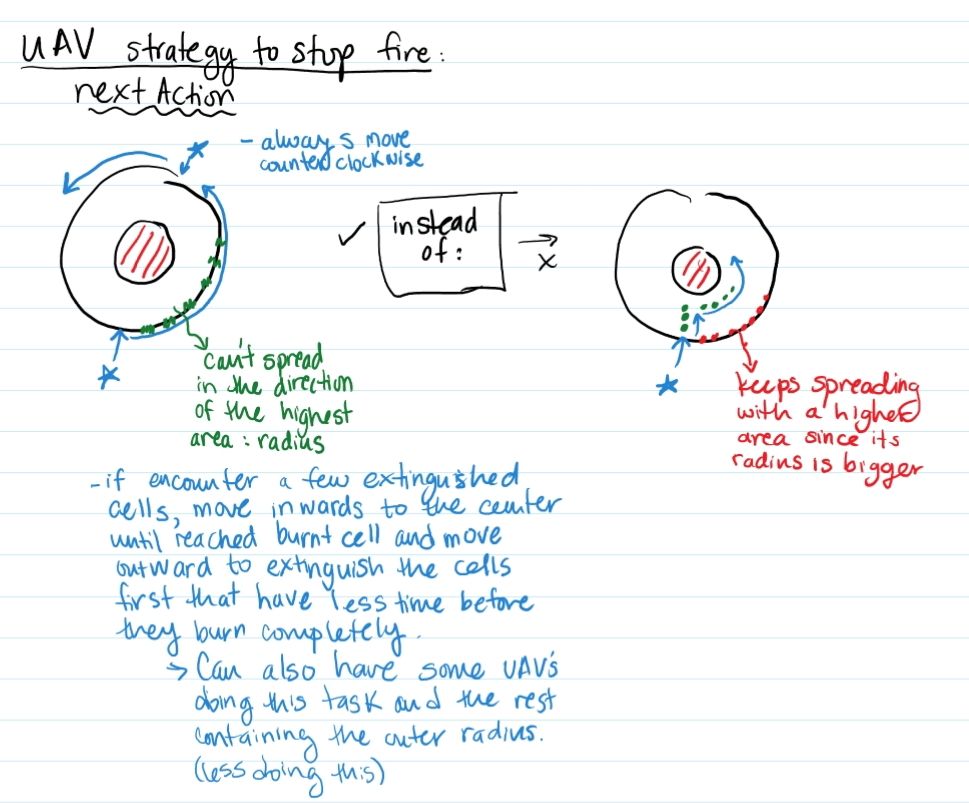 UAV strategy to stop fire:
next Action
- always move
counterclockwise
instead
of:
x
can't spread
in the direction
of the highest
area: radius
keeps spreading
with a higher
area since its
radius is bigger
- if encounter a few extinguished
cells, move inwards to the center
until reached burnt cell and move
outward to extinguish the cells
first that have less time before
they burn completely.
→ Can also have some UAV's
doing this task and the rest
containing the outer radius.
(less doing this)